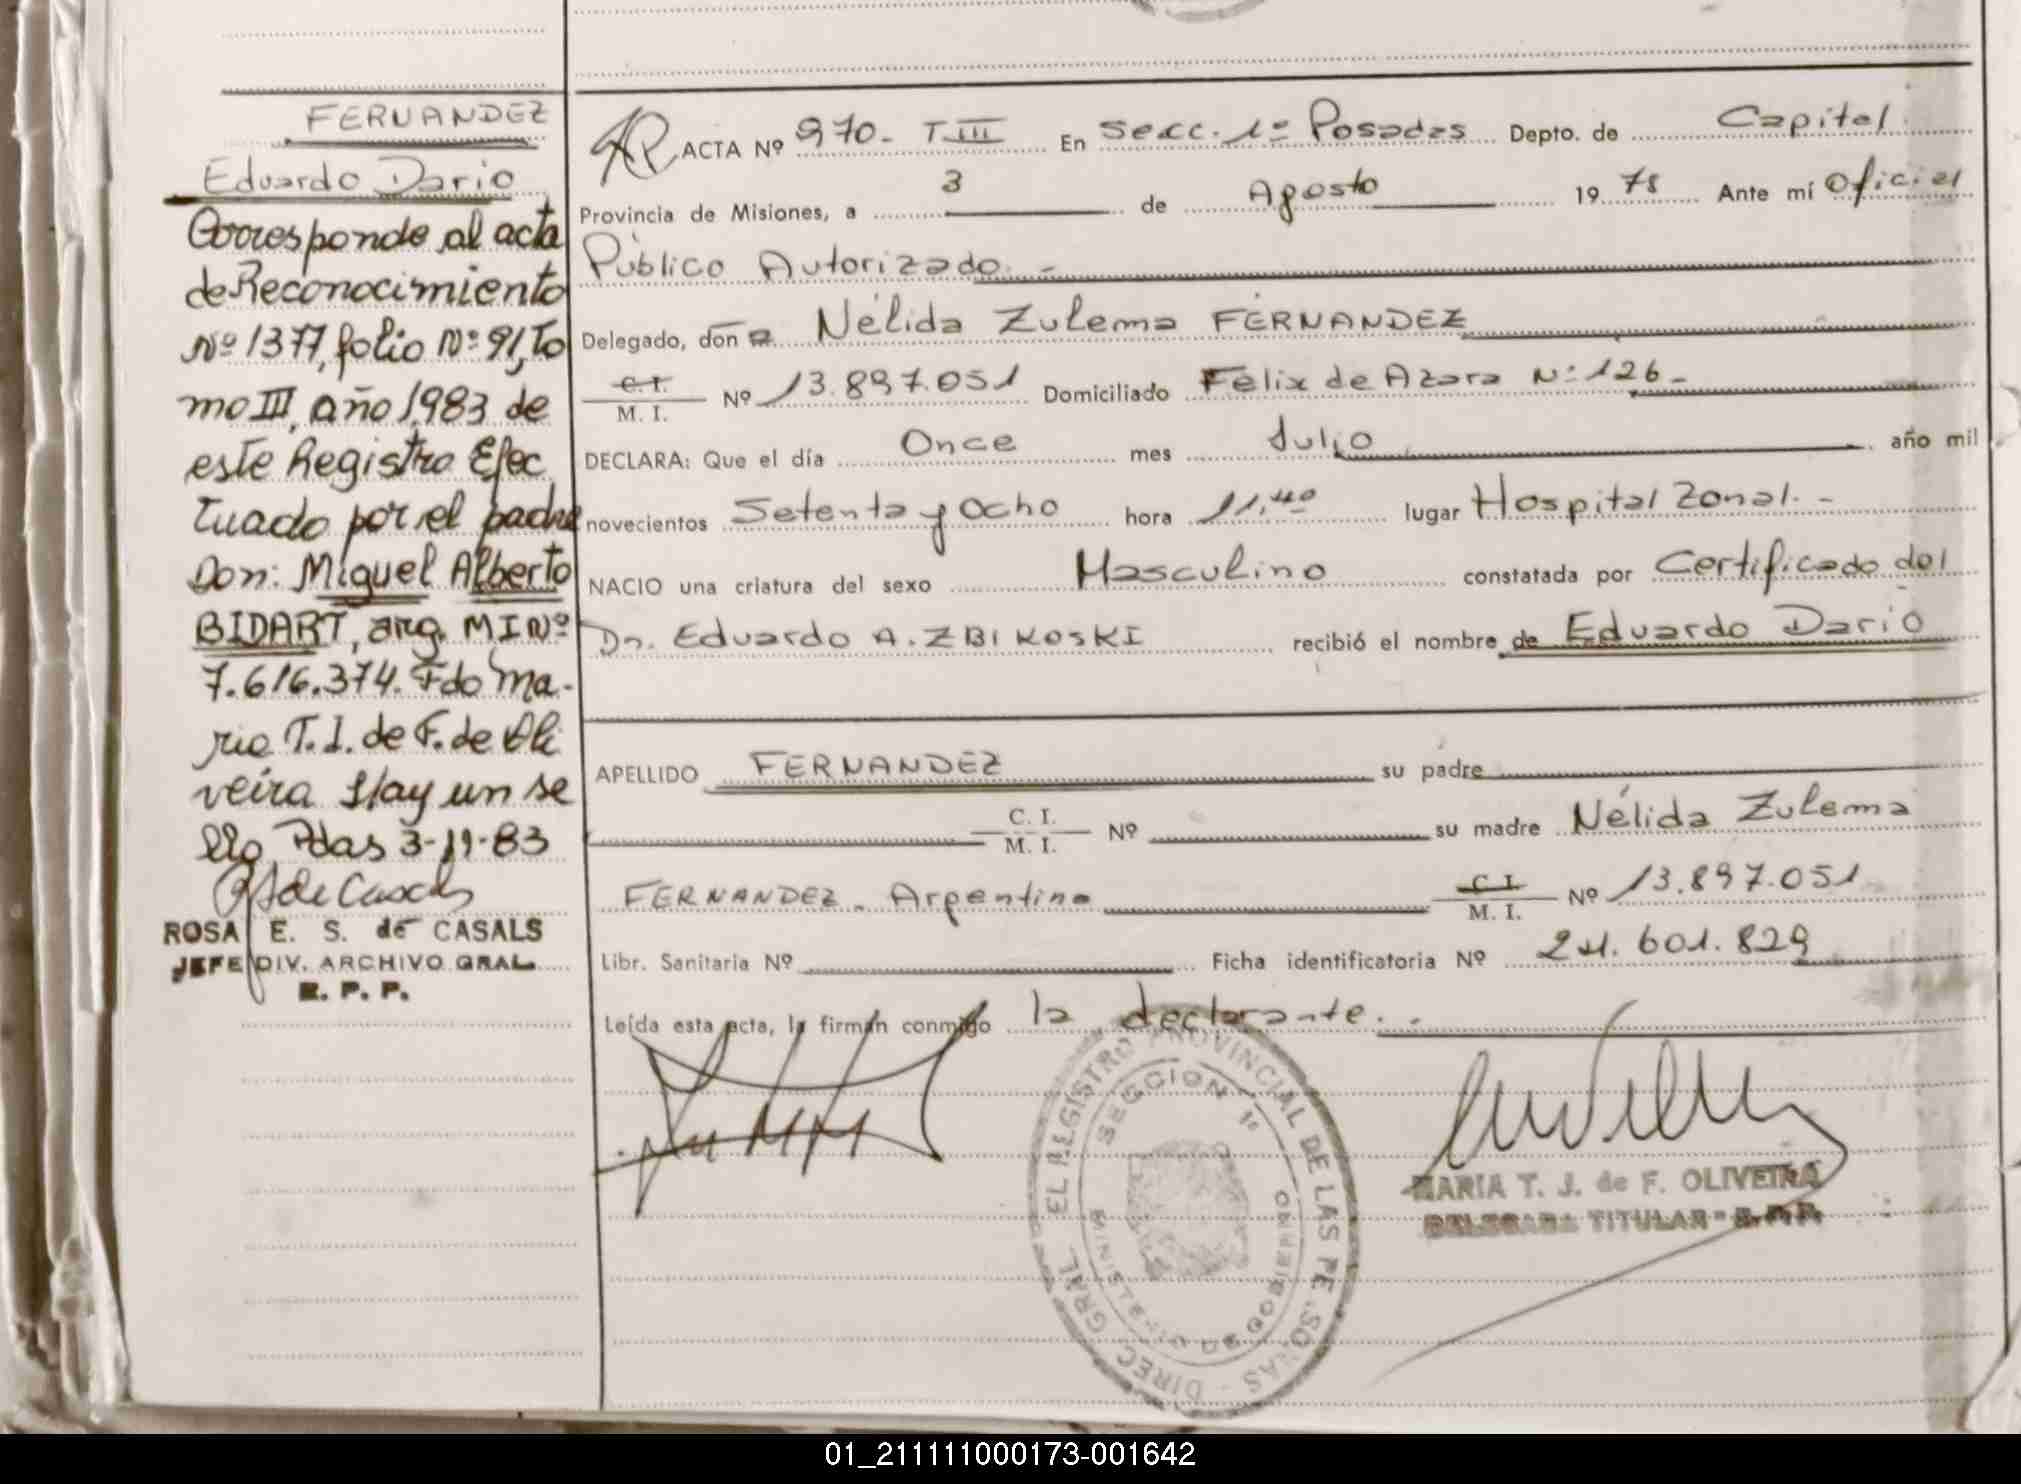 FERNANDEZ
Eduardo Dario
Corresponde al acta
de Reconocimiento
Nº 1377, folio Nº 91, To
mo III, año 1983 de
este Registro Efec
tuado por el padre
Don: Miguel Alberto
BIDART, arg. MI Nº
7.616.374. Fdo Ma-
ria T. J. de F. de Oli
veira Hay un se
llo Pdas 3-11-83
ROSA E. S. de CASALS
JEFE DIV. ARCHIVO GRAL.
R. P. P.
ACTA Nº 970- T III En Secc. 1º Posadas Depto. de Capital
Provincia de Misiones, a 3 de Agosto 19 78 Ante mí Oficial
Público Autorizado. -
Delegado, don a Nélida Zulema FERNANDEZ
C. I.
M. I. Nº 13.897.051 Domiciliado Félix de Azara Nº 126-
DECLARA: Que el día Once mes Julio año mil
novecientos Setenta y Ocho hora 11,40 lugar Hospital Zonal. -
NACIO una criatura del sexo Masculino constatada por Certificado del
Dr. Eduardo A. ZBIKOSKI recibió el nombre de Eduardo Dario
APELLIDO FERNANDEZ su padre
C. I.
M. I. Nº su madre Nélida Zulema
FERNANDEZ - Argentina C. I.
M. I. Nº 13.897.051
Libr. Sanitaria Nº Ficha identificatoria Nº 24.601.829
Leída esta acta, la firman conmigo la declarante. -
DIREC. GRAL. EL REGISTRO PROVINCIAL DE LAS PERSONAS
SECCION 1º
MINISTERIO DE GOBIERNO
MARIA T. J. de F. OLIVEIRA
DELEGADA TITULAR - R.P.P.
01_211111000173-001642